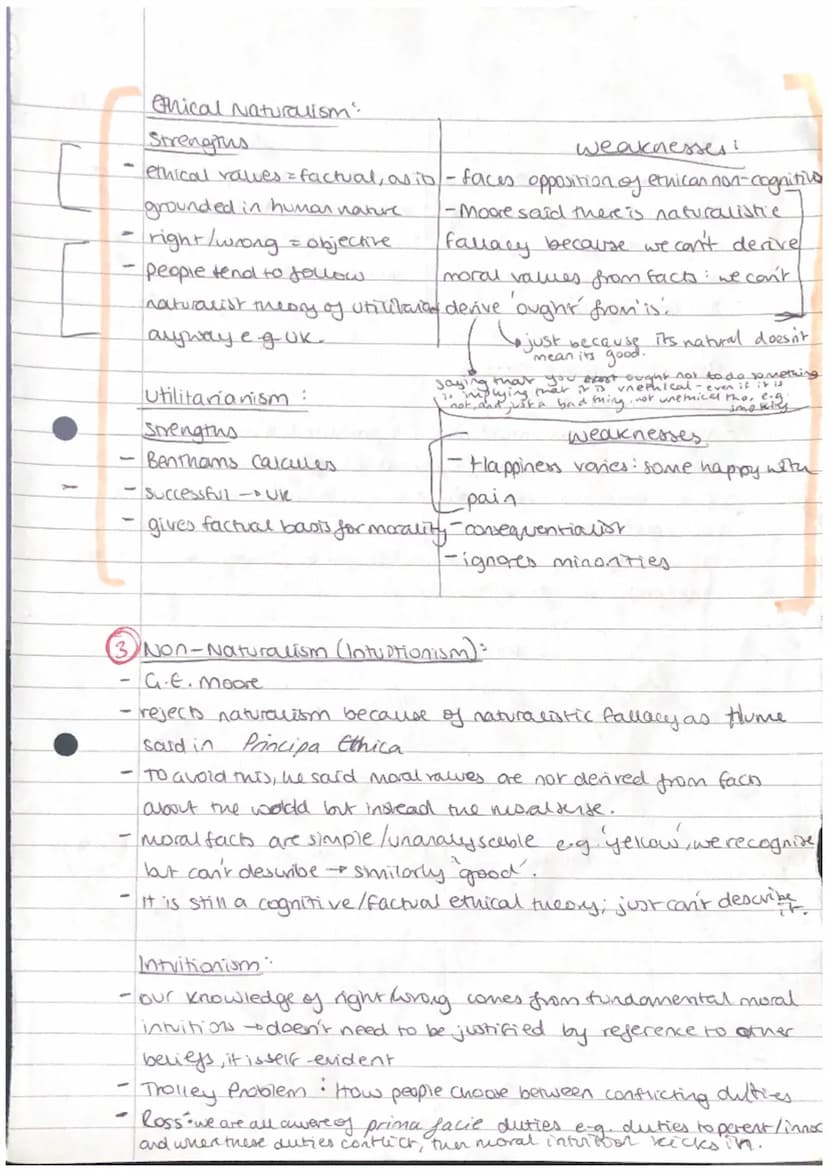 Ethical Naturalism:
Strengths
- ethical values = factual, as is
grounded in human nature
- right/wrong = objective
- people tend to follow
naturalist theory of utilitarian
anyway e.g UK.
Weaknesses:
- faces opposition of ethical non-cognitivis
- Moore said there is naturalistic
fallacy because we can't derive
moral values from facts: we can't
derive 'ought' from 'is'.
just because its natural doesn't
mean its good.
saying that you ought not to do something
is implying that it is unethical - even if it is
not, and just a bad thing, not unethical tho, e.g.
smoking
Utilitarianism:
Strengths
- Benthams Calculus
- successful → UK
- gives factual basis for morality
Weaknesses
- Happiness varies: some happy with
pain
- consequentialist
- ignores minorities
3 Non-Naturalism (Intuitionism):
- G.E. Moore
- rejects naturalism because of naturalistic fallacy as Hume
said in Principa Ethica
- To avoid this, he said moral values are not derived from facts
about the world but instead the moral sense.
- moral facts are simple/unanalysable e.g. 'yellow', we recognise
but can't describe → similarly 'good'.
- It is still a cognitive/factual ethical theory; just can't describe
it.
Intuitionism:
- our knowledge of right/wrong comes from fundamental moral
intuitions → doesn't need to be justified by reference to other
beliefs, it is self-evident
- Trolley Problem: How people choose between conflicting duties
- Ross: we are all aware of prima facie duties e.g. duties to parent/innoc
and when these duties conflict, then moral intuition kicks in.